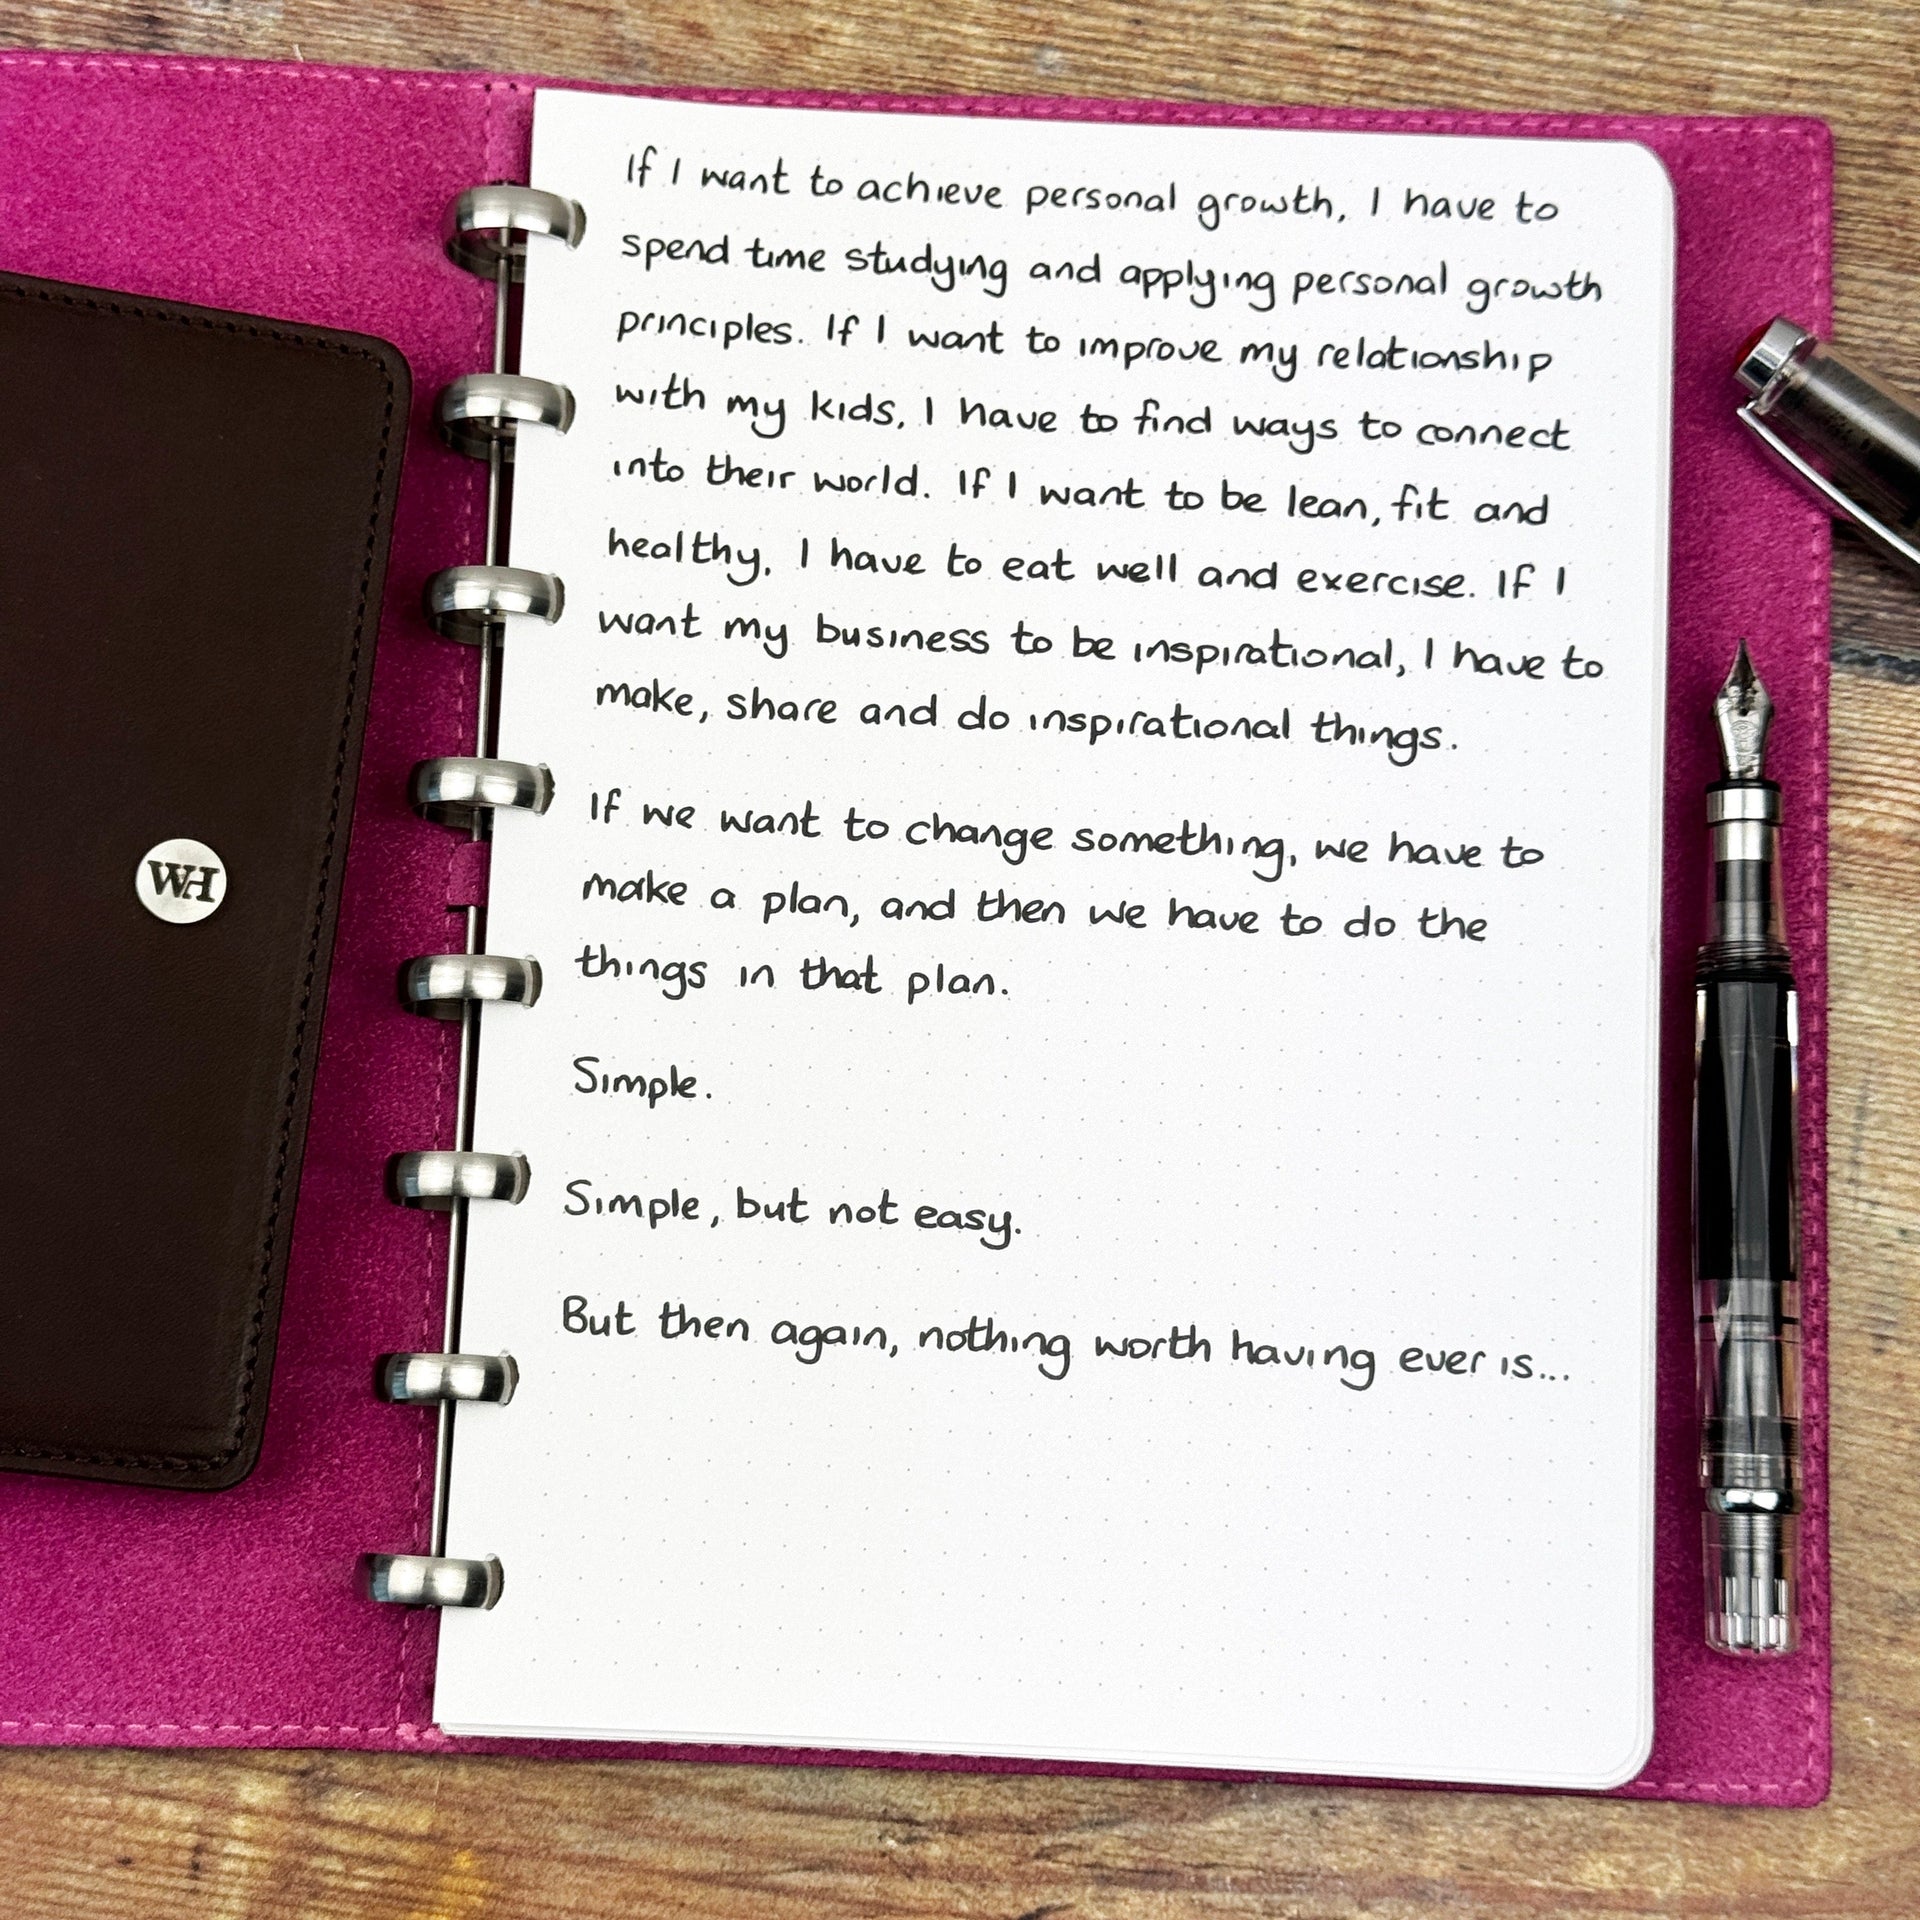 WH
If I want to achieve personal growth, I have to
spend time studying and applying personal growth
principles. If I want to improve my relationship
with my kids, I have to find ways to connect
into their world. If I want to be lean, fit and
healthy, I have to eat well and exercise. If I
want my business to be inspirational, I have to
make, share and do inspirational things.
If we want to change something, we have to
make a plan, and then we have to do the
things in that plan.
Simple.
Simple, but not easy.
But then again, nothing worth having ever is...